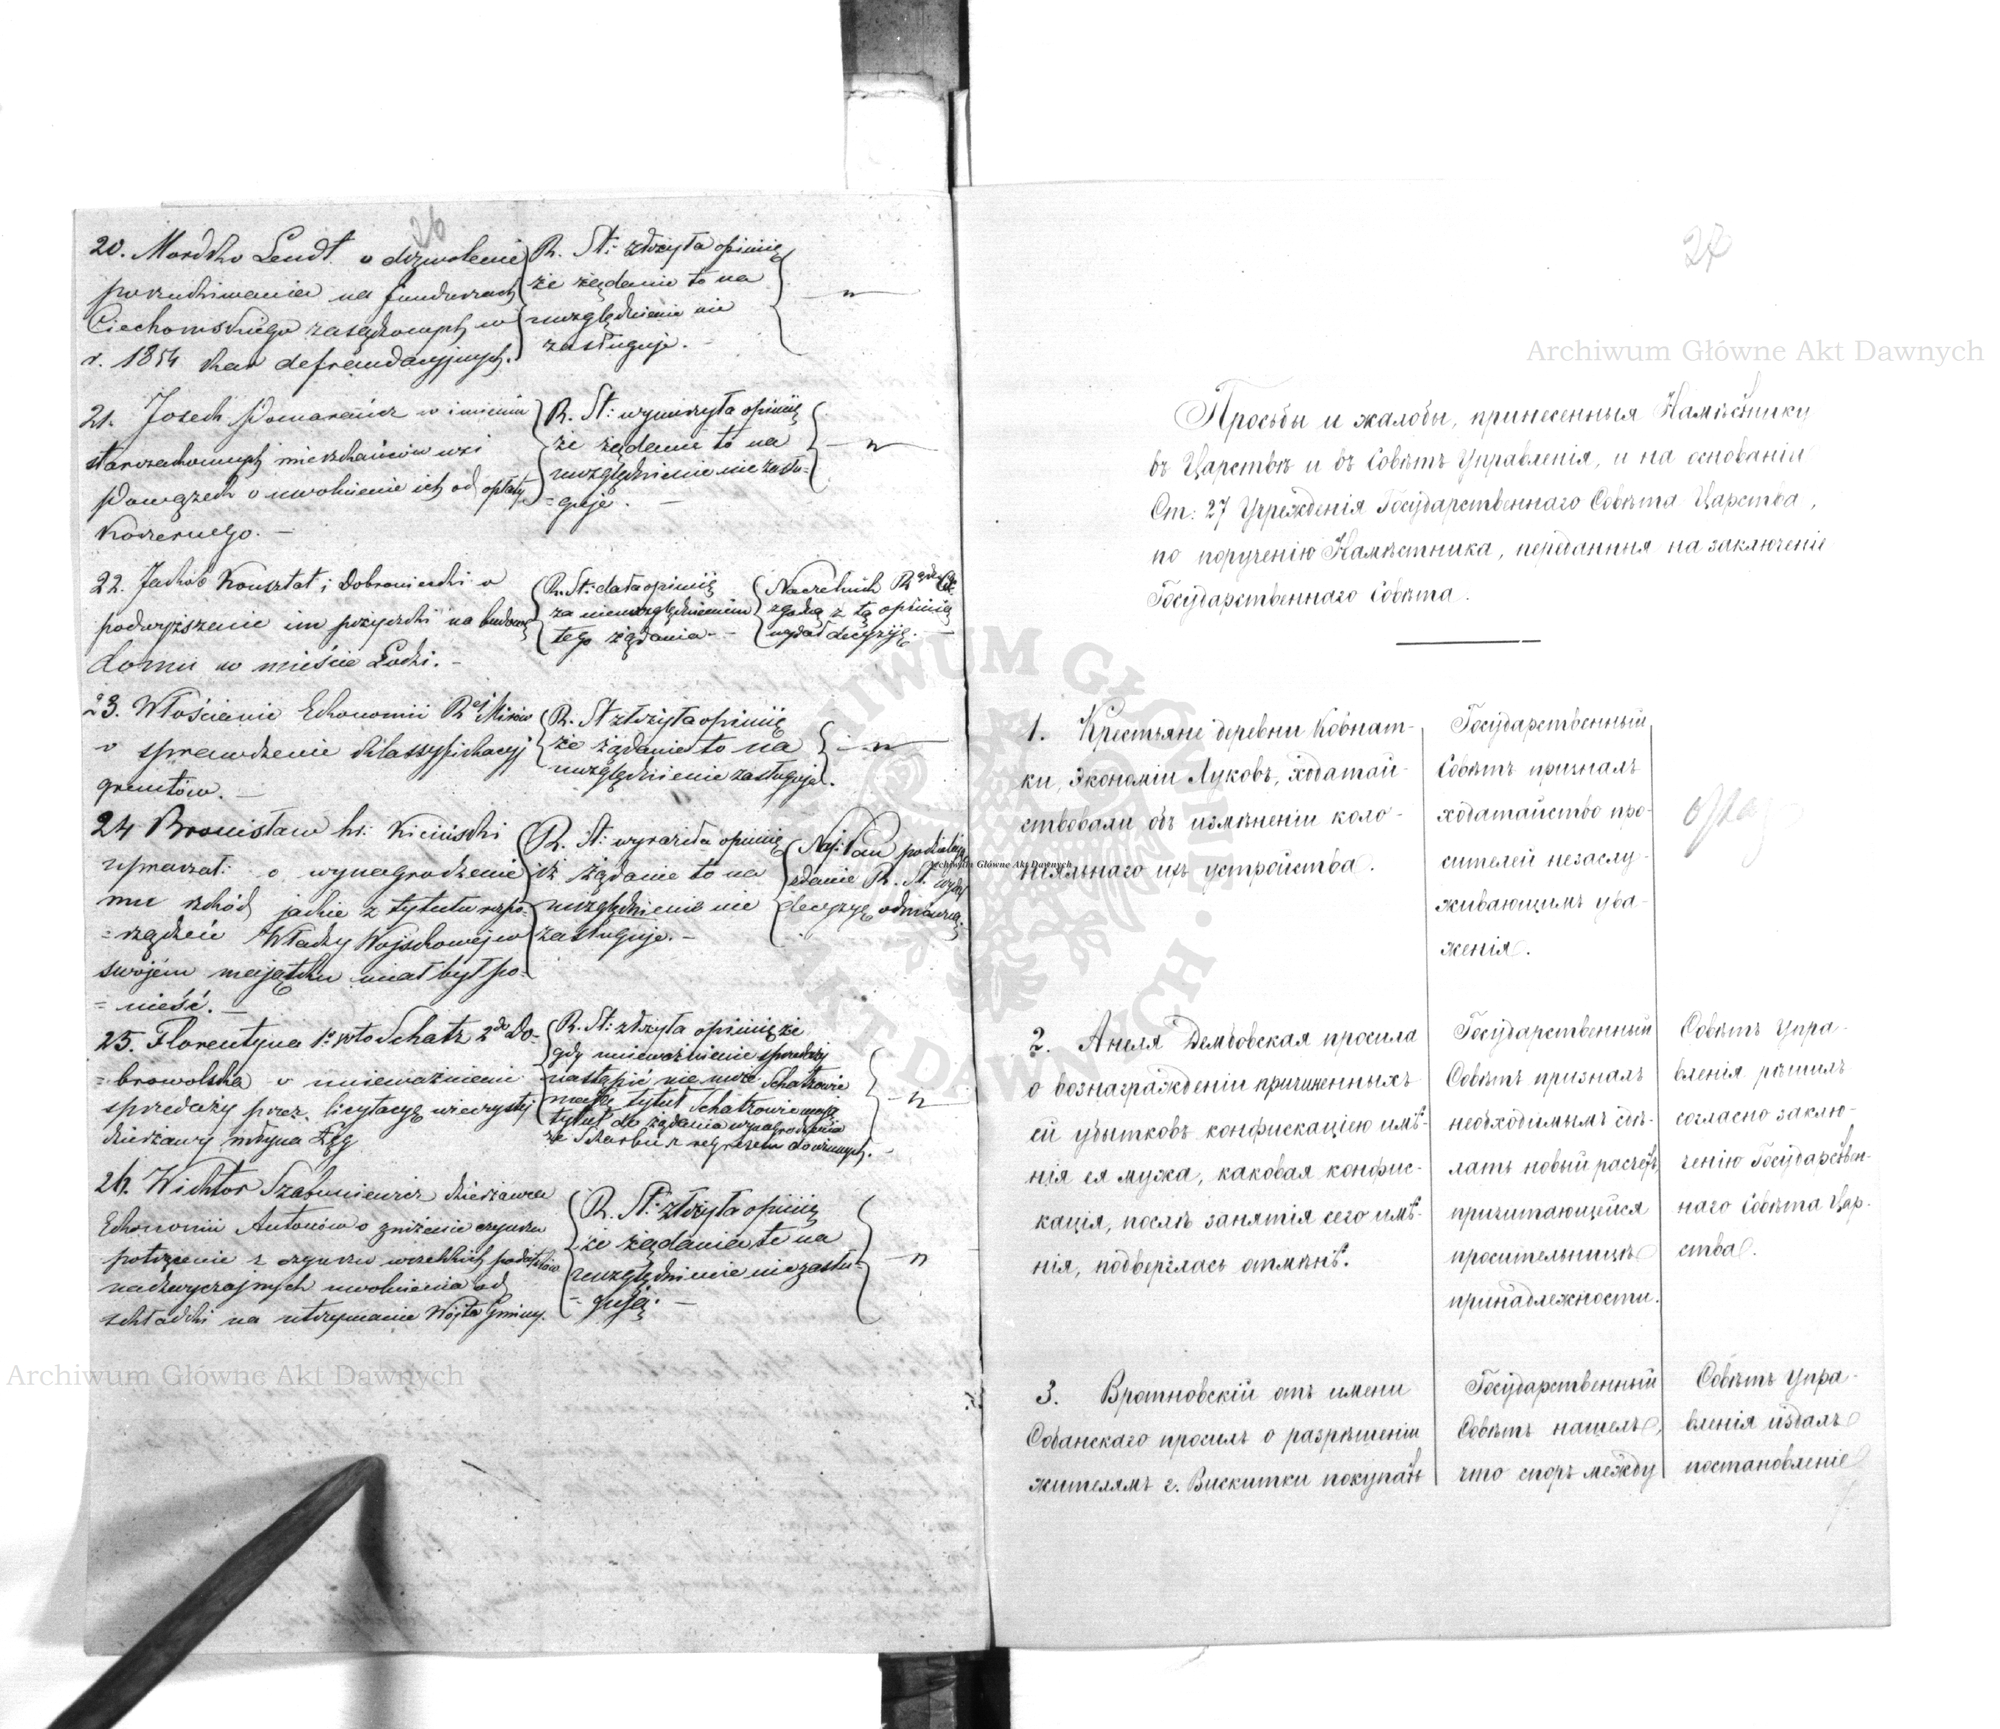 26
20. Mordko Lendt. o dozwolenie
poszukiwania na funduszach
Ciechomskiego zasądzonych w
r. 1854 kar defraudacyjnych.
R. St: złożyła opinię
że żądanie to na
uwzględnienie nie
zasługuje. -
— n —
21. Josek Pomarańcz w imieniu
starozakonnych mieszkańców wsi
Powązek o uwolnienie ich od opłaty
Koszernego. —
R. St: wyrzekła opinię
że żądanie to na
uwzględnienie nie zasłu-
= guje. —
— n —
22. Jakób Konsztat i Dobraniecki o
podwyższenie im pożyczki na budowę
domu w mieście Łodzi. -
R. St: dała opinię
za nieuwzględnieniem
tego żądania. -
Naczelnik Rządu
zgodną z tą opinią
wydał decyzję. —
23. Włościanie Ekonomii Rej Mirów
o sprawdzenie klassyfikacyj
gruntów. —
R. St złożyła opinię
że żądanie to na
uwzględnienie zasługuje.
— n —
24 Bronisław hr: Kiciński
upraszał o wynagrodzenie
mu szkód jakie z tytułu rozpo-
= rządzeń Władzy Wojskowej w
swojém majątku miał był po-
= nieść. —
R. St: wyraziła opinię
iż żądanie to na
uwzględnienie nie
zasługuje. -
Naj: Pan podzielając
zdanie R. St. wydał
decyzyę odmówną.
25. Florentyna 1º vto Schatz 2do Do-
= browolska o unieważnienie
sprzedaży przez licytacyę wieczystej
dzierżawy młyna Łęg
R. St: złożyła opinię że
gdy unieważnienie sprzedaży
nastąpić nie może Schatzowie
mają tytuł Schatzowie mają
tytuł do żądania wynagrodzenia
ze Skarbu z regresem do winnych. -
— n —
26. Wichtor Szabuniewicz dzierżawca
Ekonomii Antonów o zniżenie czynszu
potrącenie z czynszu wszelkich podatków
nadzwyczajnych uwolnienia od
składki na utrzymanie Wójta Gminy.
R. St: złożyła opinię
że żądania te na
uwzględnienie nie zasłu-
= gują. —
— n
27
Просьбы и жалобы, принесенныя Намѣстнику
въ Царствѣ и въ Совѣтъ Управленія, и на основаніи
Ст: 27 Учрежденія Государственнаго Совѣта Царства,
по порученію Намѣстника, переданныя на заключеніе
Государственнаго Совѣта.
1. Крестьяне деревни Ковнат-
ки, Экономіи Луковъ, ходатай-
ствовали объ измѣненіи коло-
ніяльнаго ихъ устройства.
Государственный
Совѣтъ призналъ
ходатайство про-
сителей незаслу-
живающимъ ува-
женія.
2. Анеля Дембовская просила
о вознагражденіи причиненныхъ
ей убытковъ конфискаціею имѣ-
нія ея мужа, каковая конфис-
кація, послѣ занятія сего имѣ-
нія, подверглась отмѣнѣ.
Государственный
Совѣтъ призналъ
необходимымъ сдѣ-
лать новый расчетъ
причитающейся
просительницѣ
принадлежности.
Совѣтъ Упра-
вленія рѣшилъ
согласно заклю-
ченію Государствен-
наго Совѣта Цар-
ства.
3. Вротновскій отъ имени
Собанскаго просилъ о разрѣшеніи
жителямъ г. Вискитки покупать
Государственный
Совѣтъ нашелъ,
что споръ между
Совѣтъ Упра-
вленія издалъ
постановленіе
Archiwum Główne Akt Dawnych
Archiwum Główne Akt Dawnych
Archiwum Główne Akt Dawnych
ARCHIWUM GŁÓWNE AKT DAWNYCH